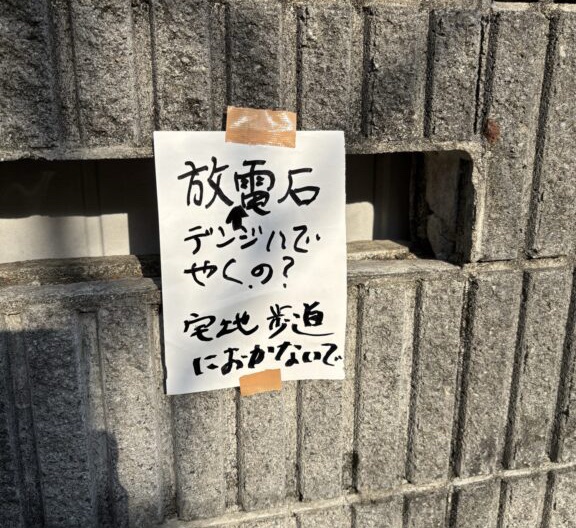 放電石
デンジハで
やくの?
宅地 歩道
におかないで